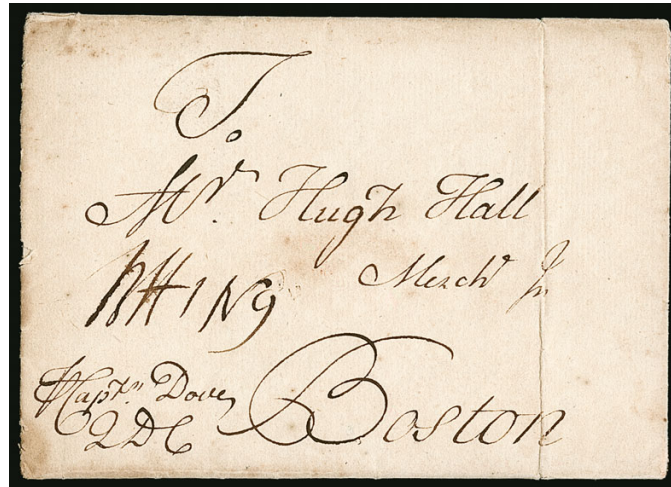 To
Mr. Hugh Hall
Mercht In
Captn Dove
Boston